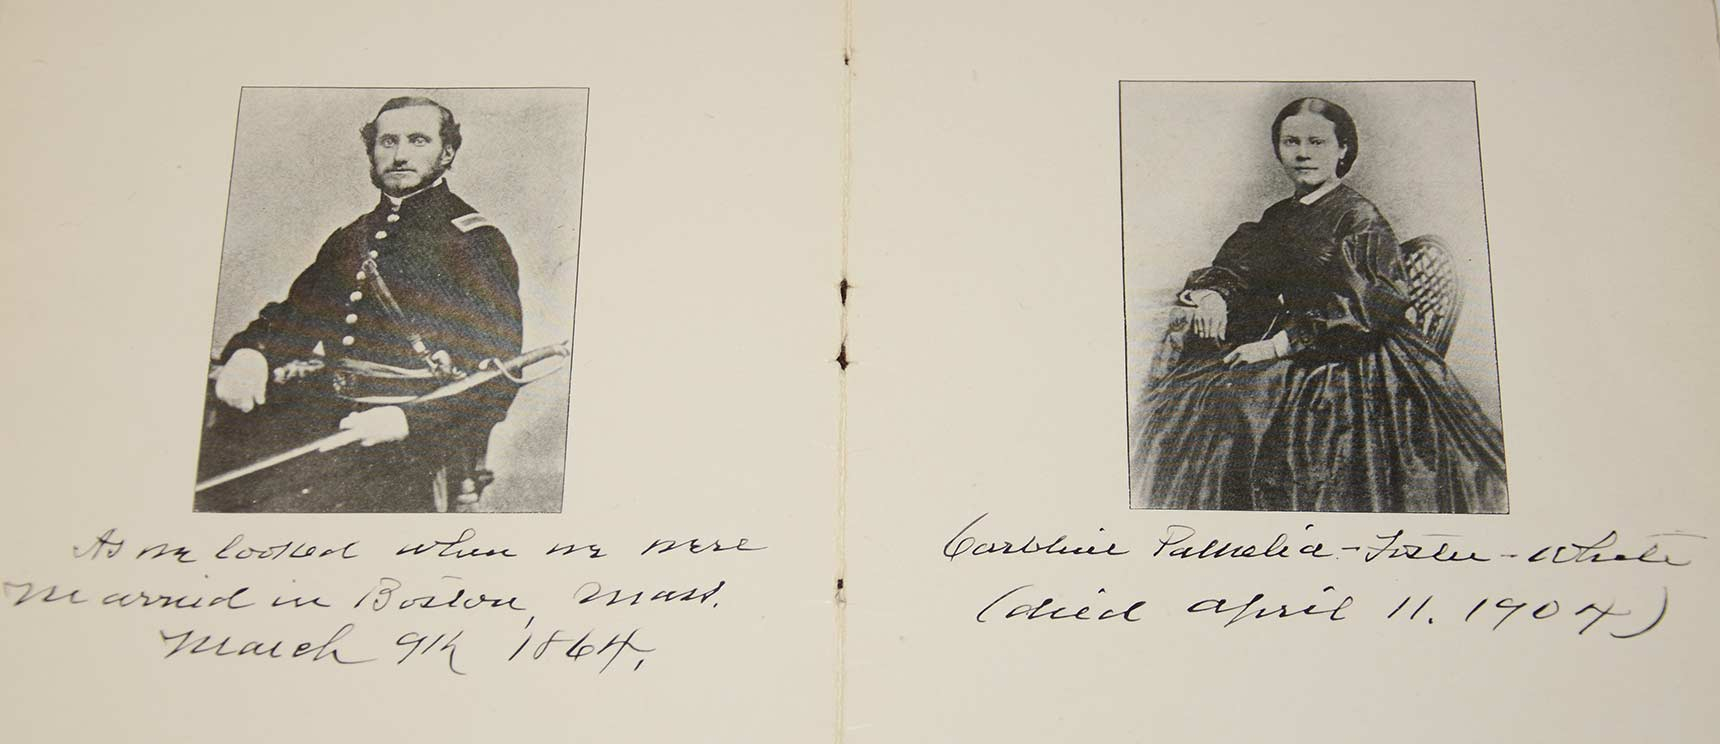 As we looked when we were
Married in Boston, Mass.
March 9th 1864.
Caroline Pamelia-Foster-White
(died April 11. 1904)